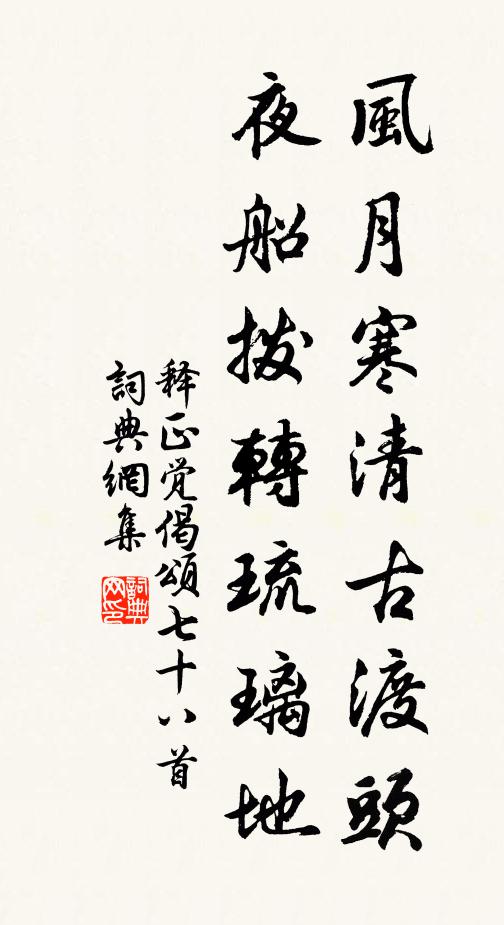 風月寒清古渡頭
夜船拨轉琉璃地
释正觉偈頌七十八首
詞典網集
詞典網印